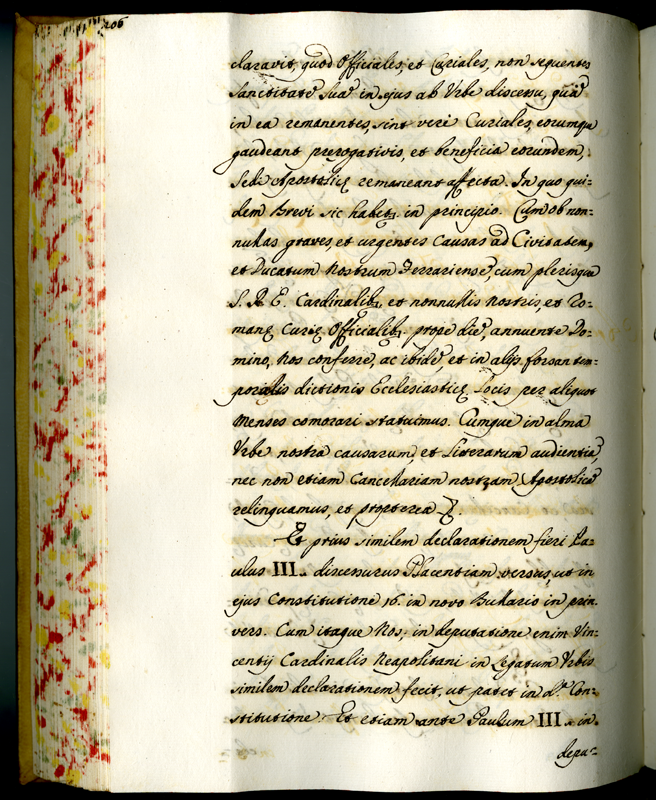 206
claravit quod Officiales, et Curiales, non sequentes
Sanctitatē Suā in ejus ab Urbe discessu, quā
in ea remanentes, sint veri Curiales, eorumque
gaudeant prerogativis, et beneficia eorundem,
Sedi Apostolicę remaneant affecta. In quo qui=
dem Brevi sic habetr. in principio. Cum ob non=
nullas graves, et urgentes causas ad Civitatem,
et Ducatum Nostrum Ferrariensē, cum plerisque
S. R. E. Cardinalibs, et nonnullis nostris, et Ro=
manę Curię Officialibs prope diē, annuente Do=
mino, Nos conferre, ac ibidē, et in alijs forsan tem=
poralis dictionis Ecclesiasticę Locis per aliquot
Menses comorari statuimus. Cumque in alma
Urbe nostra causarum, et Literarum audientiā,
nec non etiam Cancellariam nostram Apostolicā
relinquamus, et propterea
Et prius similem declarationem fieri Pa=
ulus III. discessurus Placentiam versus, ut in
ejus Constitutione 16. in novo Bullario in prin.
vers. Cum itaque Nos; in deputatione enim Vin=
centij Cardinalis Neapolitani in Legatum Urbis
similem declarationem fecit, ut patet in d.ª Con=
stitutione. Et etiam ante Paulum III. in
depu=